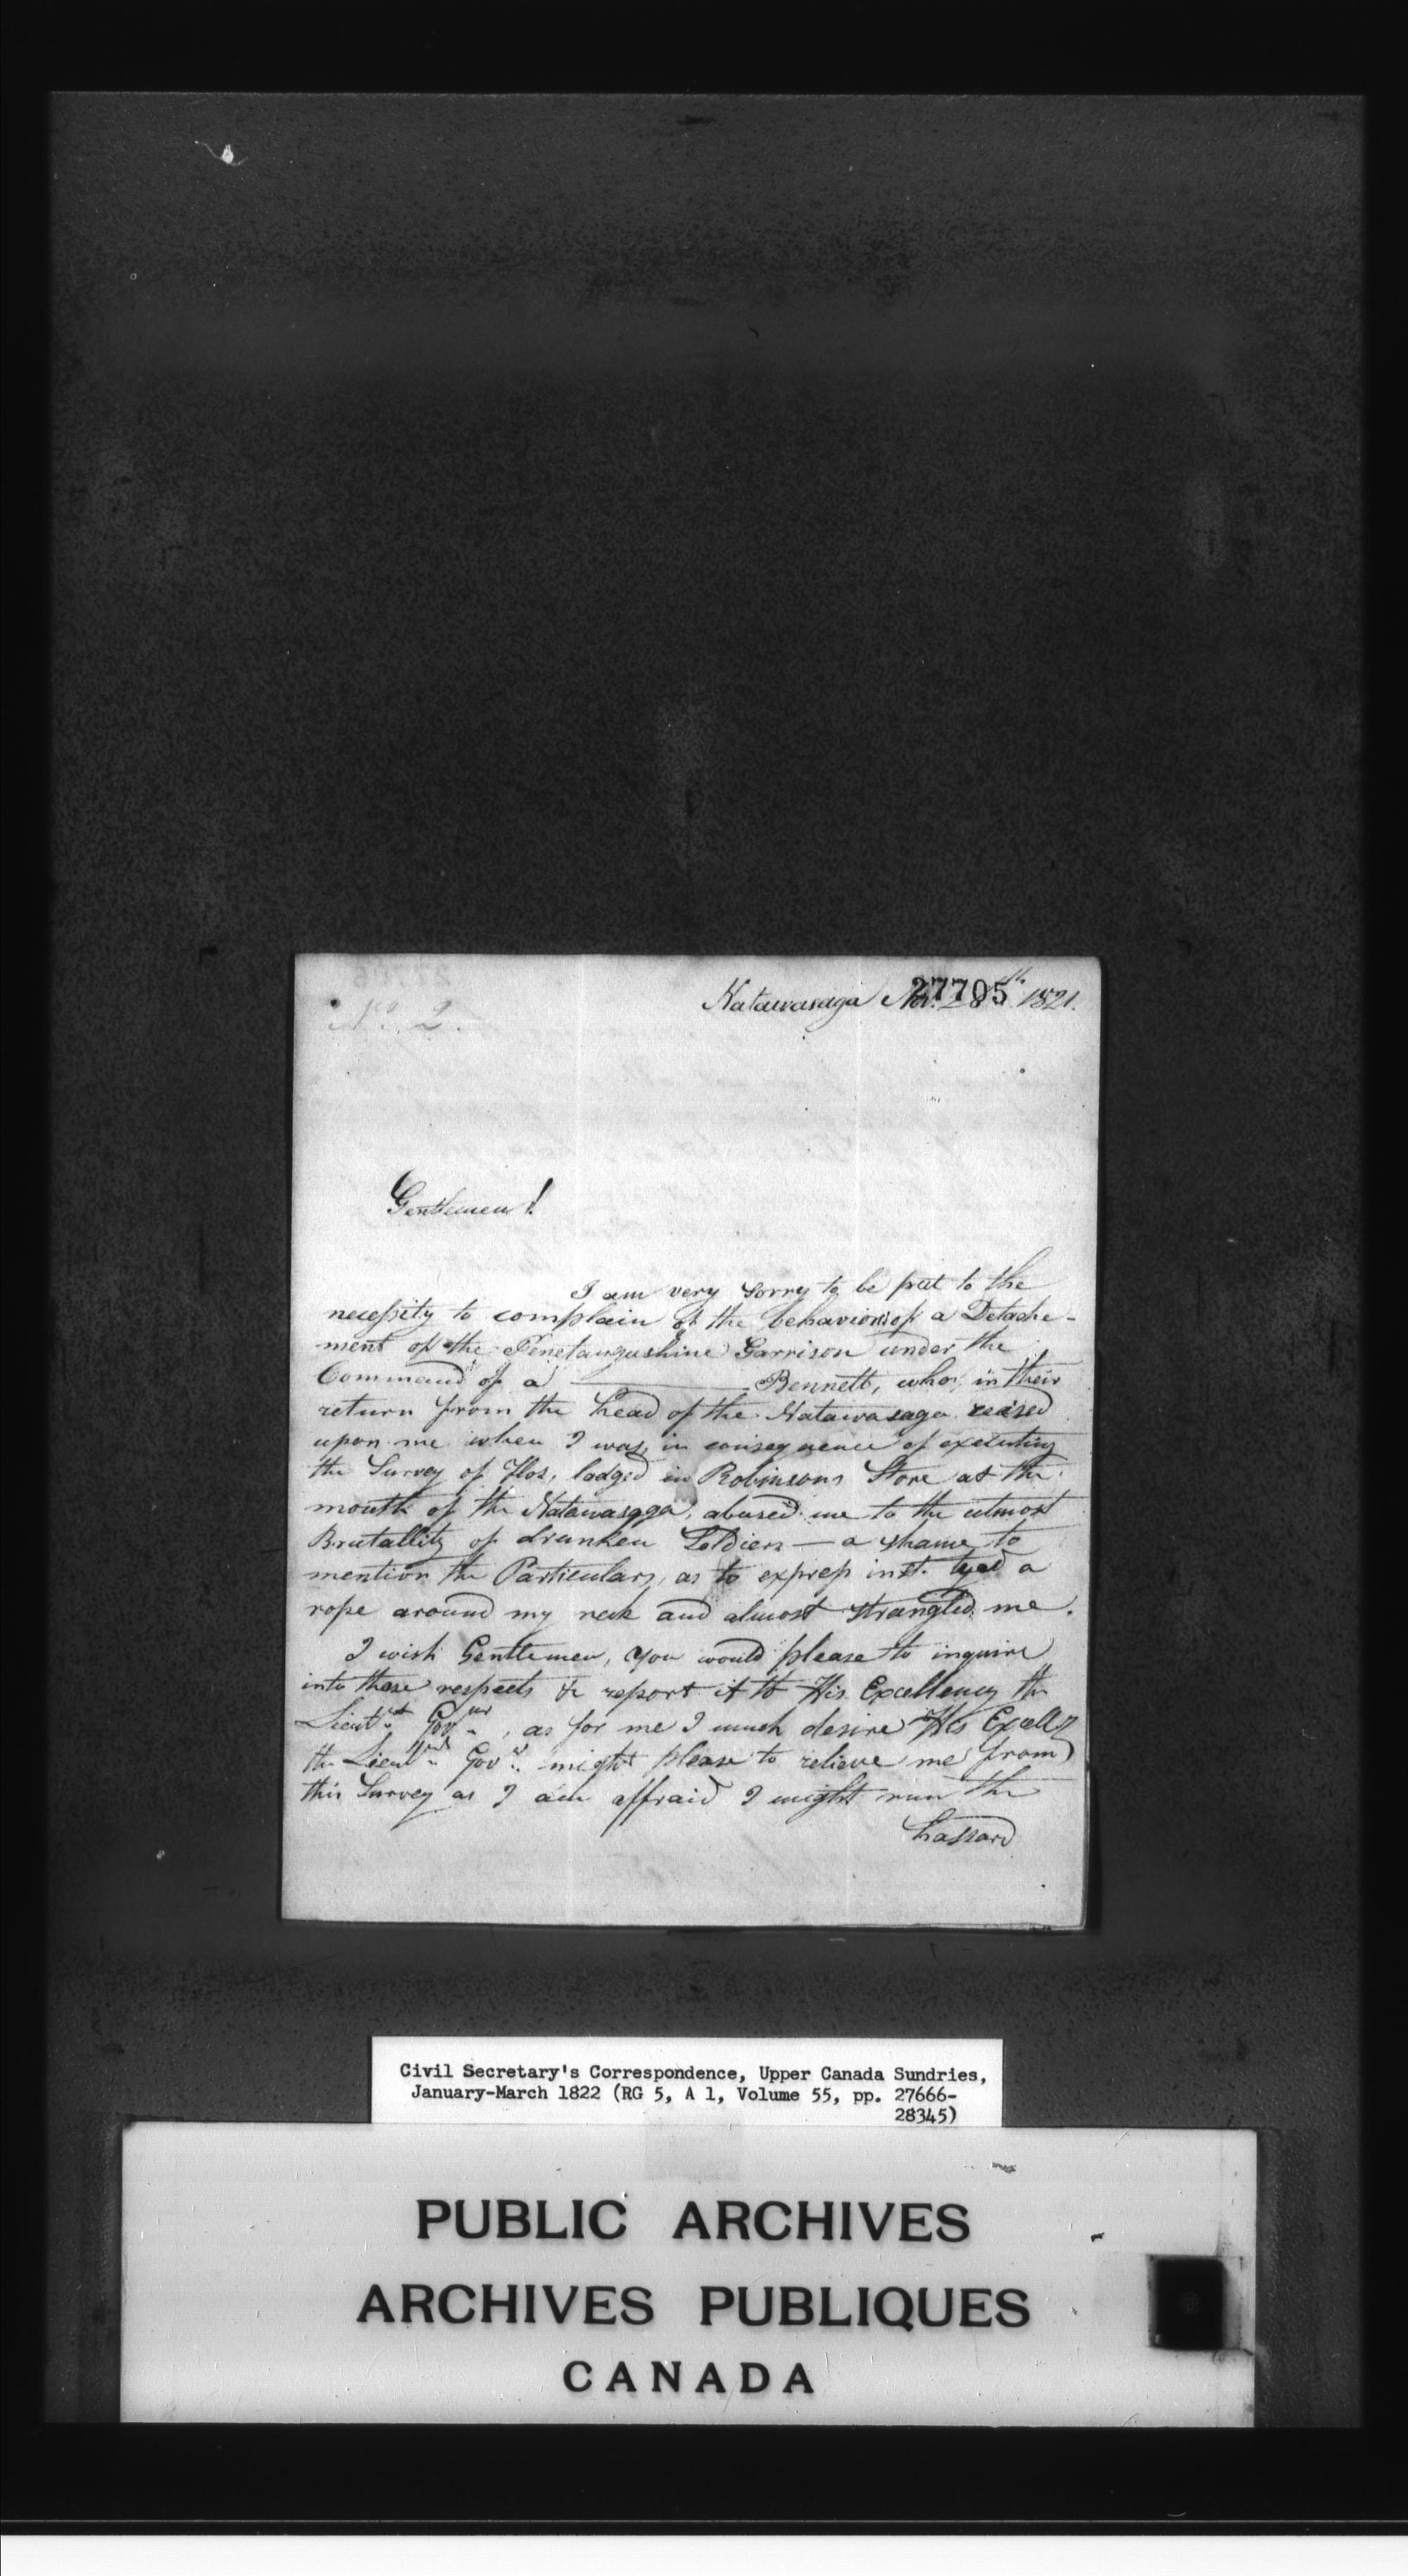 27705
Natawasaga Nov. 28th 1821.
No. 2.
Gentlemen!
I am very sorry to be put to the
necessity to complain of the behavior of a Detache-
ment of the Penetangushine Garrison under the
Command of a ——— Bennett, who, in their
return from the head of the Natawasaga reised
upon me when I was, in consequence of executing
the Survey of Flos, lodged in Robinsons Store at the
mouth of the Natawasaga, abused me to the utmost
Brutallity of drunken Soldiers — a shame to
mention the Particulars, as to express inst. tyed a
rope around my neck and almost strangled me.
I wish Gentlemen, you would please to inquire
into these respects & report it to His Excellency the
Lieut. Gov., as for me I much desire His Excelly
the Lieut. Gov. might please to relieve me from
this Survey as I am affraid I might run the
hassard
Civil Secretary's Correspondence, Upper Canada Sundries,
January-March 1822 (RG 5, A 1, Volume 55, pp. 27666-
28345)
PUBLIC ARCHIVES
ARCHIVES PUBLIQUES
CANADA